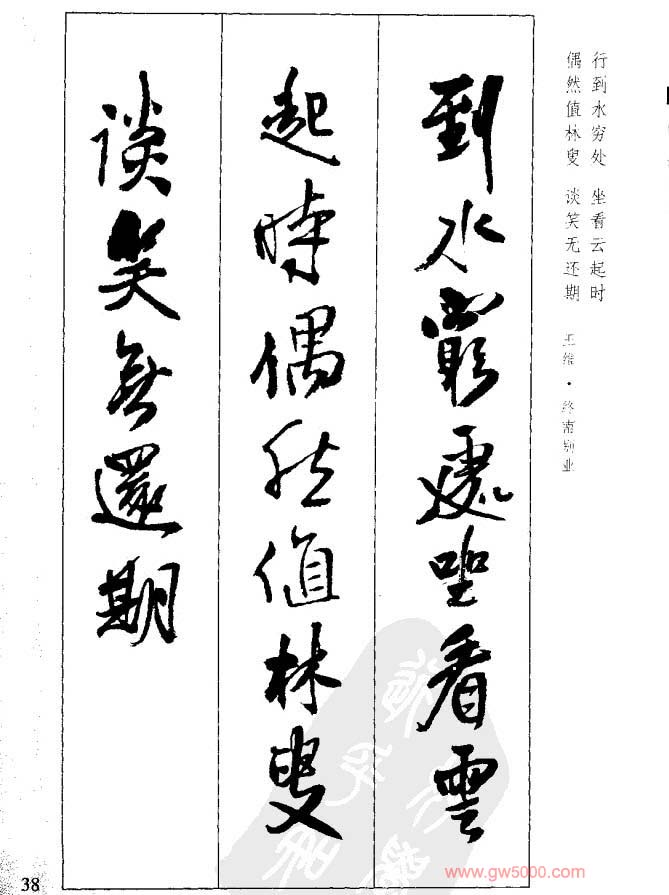 行到水穷处 坐看云起时
偶然值林叟 谈笑无还期 王维·终南别业
到水窮處坐看雲
起時偶然值林叟
谈笑無還期
38
www.gw5000.com